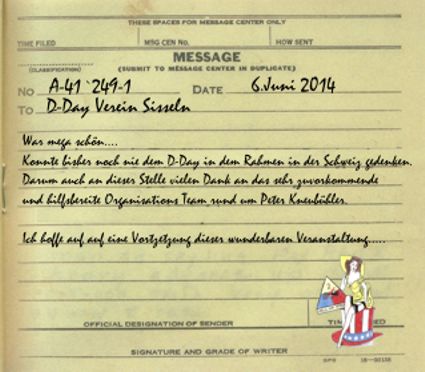 THESE SPACES FOR MESSAGE CENTER ONLY
TIME FILED MSG CEN No. HOW SENT
MESSAGE
(CLASSIFICATION) (SUBMIT TO MESSAGE CENTER IN DUPLICATE)
No A-41 `249-1 DATE 6.Juni 2014
To D-Day Verein Sisseln
War mega schön....
Konnte bisher noch nie dem D-Day in dem Rahmen in der Schweiz gedenken.
Darum auch an dieser Stelle vielen Dank an das sehr zuvorkommende
und hilfsbereite Organisations Team rund um Peter Kneubühler.
Ich hoffe auf auf eine Vortzetzung dieser wunderbaren Veranstaltung.....
OFFICIAL DESIGNATION OF SENDER
SIGNATURE AND GRADE OF WRITER